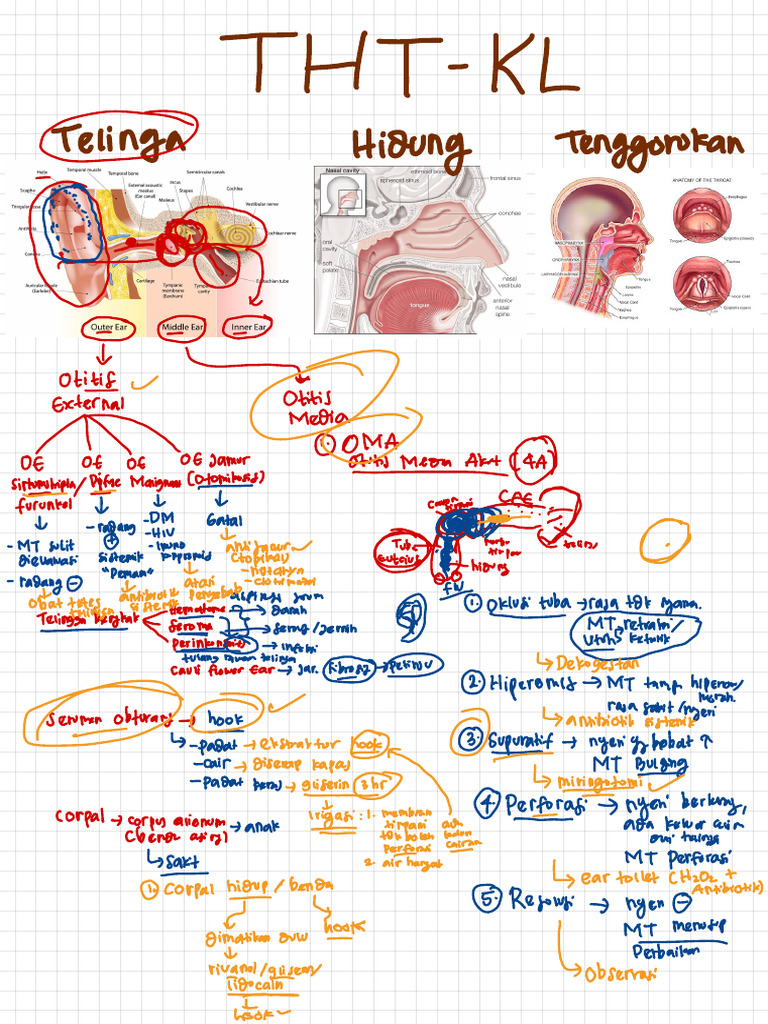 THT-KL
Telinga
Hidung
Tenggorokan
Helix
Temporal muscle
Temporal bone
Semicircular canals
External acoustic
meatus
(Ear canal)
Incus
Stapes
Malleus
Cochlea
Vestibular nerve
Cochlear nerve
Cartilage
Tympanic
membrane
(Eardrum)
Tympanic
cavity
Eustachian tube
Outer Ear
Middle Ear
Inner Ear
Nasal cavity
ethmoid sinus
sphenoid sinus
frontal sinus
conchae
oral
cavity
soft
palate
nasal
vestibule
anterior
nasal
spine
tongue
ANATOMY OF THE THROAT
NASOPHARYNX
OROPHARYNX
Tongue
Epiglottis
Larynx
Vocal Cord
Trachea
Esophagus
Esophagus
Tongue
Trachea
Vocal Cord
Tongue
Otitis
External
OE
Sirkumskripta
/
furunkel
OE
Difuse
OE
Malignans
OE Jamur
(Otomikosis)
- MT sulit
dievaluasi
- radang ⊖
- radang
⊕
sistemik
"Demam"
- DM
- HIV
Gatal
antijamur
(topikal)
antibiotik
sistemik
Telinga bengkak
Hematoma → darah
Seroma → serous/jernih
Perikondritis → infeksi
tulang rawan telinga
Cauli flower Ear → jar. fibrosis → Pelintir
Serumen obturans → hook
- padat → ekstraktor hook
- cair → diserap kapas
- padat keras → gliserin 3 hr
Irigasi : 1. membran
timpani
tdk boleh
perforasi
2. air hangat
Corpal → corpus alienum
(benda asing) → anak
sakit
① Corpal hidup / benda
dimatikan dulu
hook
rivanol/gliserin/
lidocain
hook
Otitis
Media
① OMA
Otitis Media Akut (4A)
CAE
Tuba
eustacius
hidung
① Oklusi tuba → rasa tdk nyaman.
MT retraksi/
Dekogestan
② Hiperemis → MT tamp hiperemis/
merah.
rasa sakit/nyeri
antibiotik sistemik
③ Supuratif → nyeri yg hebat ↑
MT Bulging
miringotomi
④ Perforasi → nyeri berkurang,
ada keluar cairan
dari telinga
MT Perforasi
ear toilet (H2O2 +
Antibiotik)
⑤ Resolusi → nyeri ⊖
MT menutup
Perbaikan
Observasi